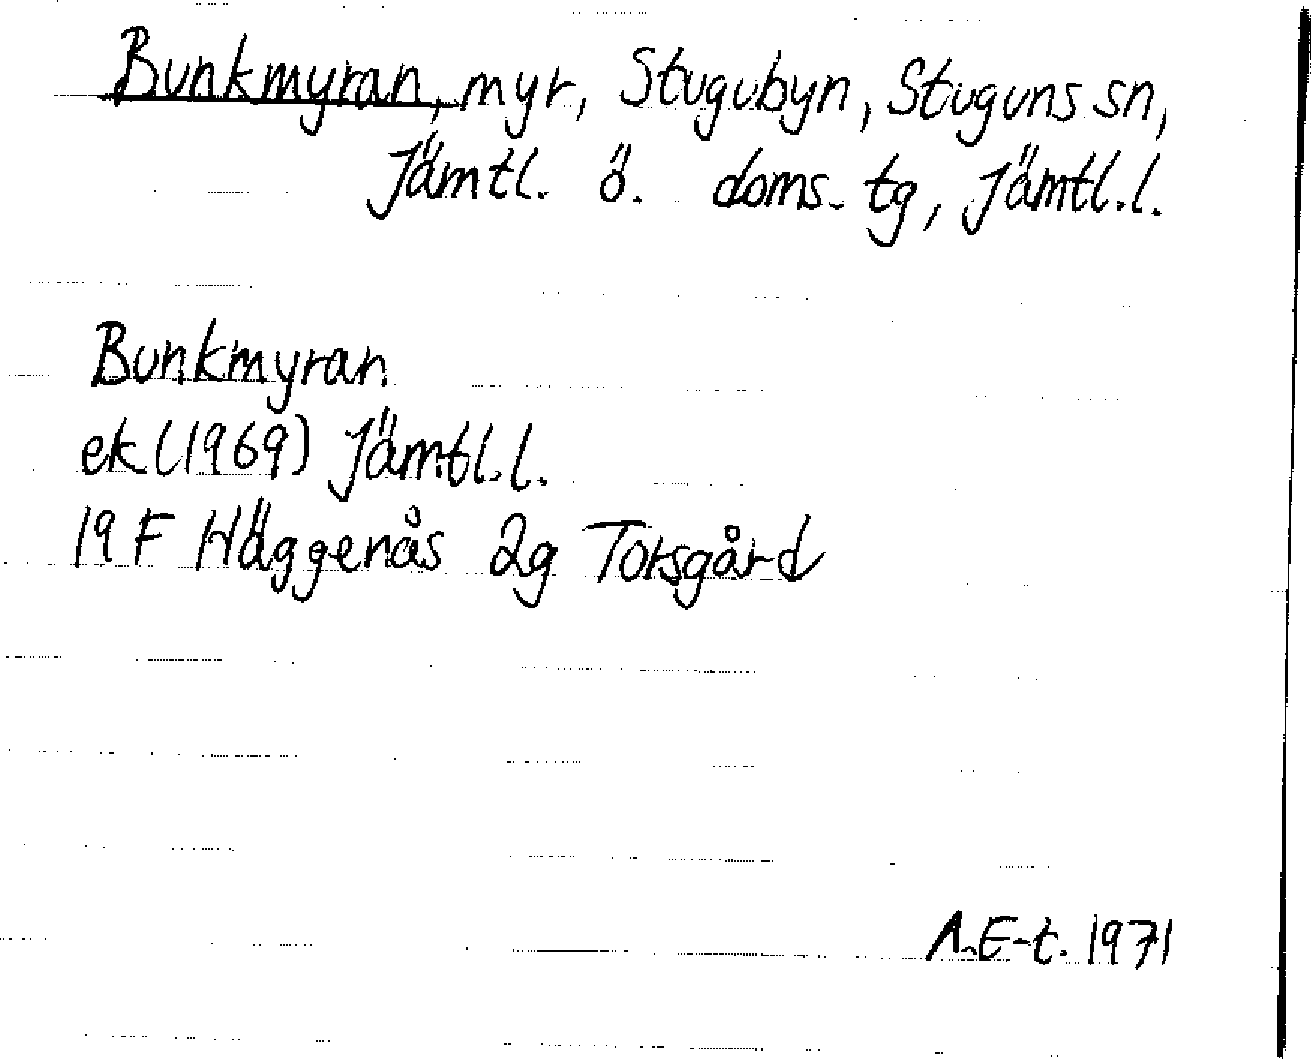 Bunkmyran, myr, Stugubyn, Stuguns sn,
Jämtl. ö. doms. tg, Jämtl.l.
Bunkmyran
ek (1969) Jämtl.l.
19 F Häggenås 2g Torsgård
A.E-t. 1971